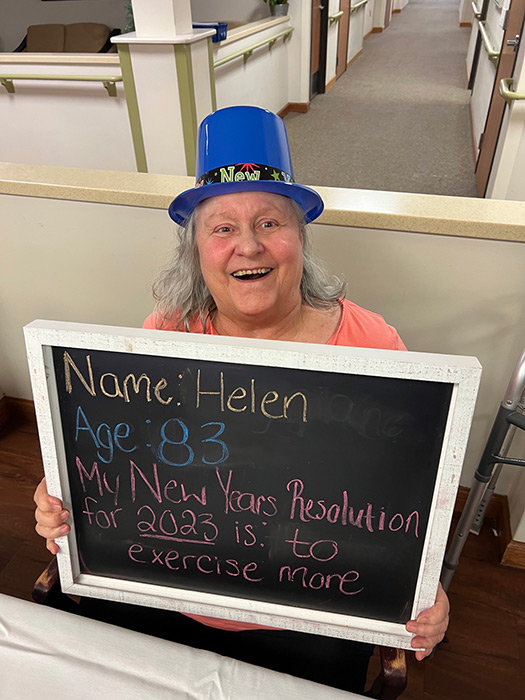 New
Name: Helen
Age: 83
My New Years Resolution
for 2023 is: to
exercise more